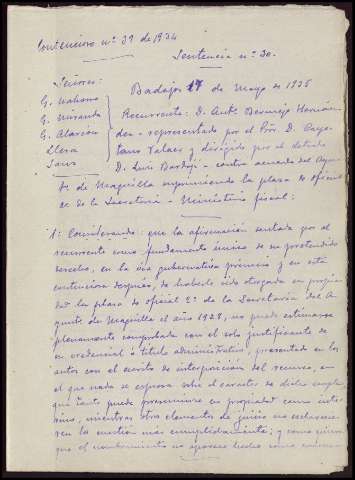 Contencioso nº 39 de 1934
Sentencia nº 30.
Señores:
G. Mahomo
G. Miranda
G. Alarcón
Llera
Sanz
Badajoz 17 de Mayo de 1935
Recurrente: D. Antº Bermejo Hernán-
dez - representado por el Pror. D. Caye-
tano y dirigido por el letrado
D. Luis Bardají - contra acuerdo del Ayunº
de Maguilla suprimiendo la plaza de oficial
2º de la Secretaría - Ministerio fiscal:
1º Considerando: que la afirmación sentada por el
recurrente como fundamento único de su pretendido
derecho, en la vía gubernativa primero y en esta
contenciosa después, de haberle sido otorgada en propie-
dad la plaza de oficial 2º de la Secretaría del A-
yunto de Maguilla el año 1928, no puede estimarse
plenamente comprobada con el solo justificante de
su credencial o título administrativo, presentado en los
autos con el escrito de interposición del recurso, en
el que nada se expresa sobre el carácter de dicho empleo,
que tanto puede presumirse en propiedad como inte-
rino, mientras otros elementos de juicio no esclarez-
can la cuestión más cumplidamente; y como quiera
que el nombramiento no aparece hecho como